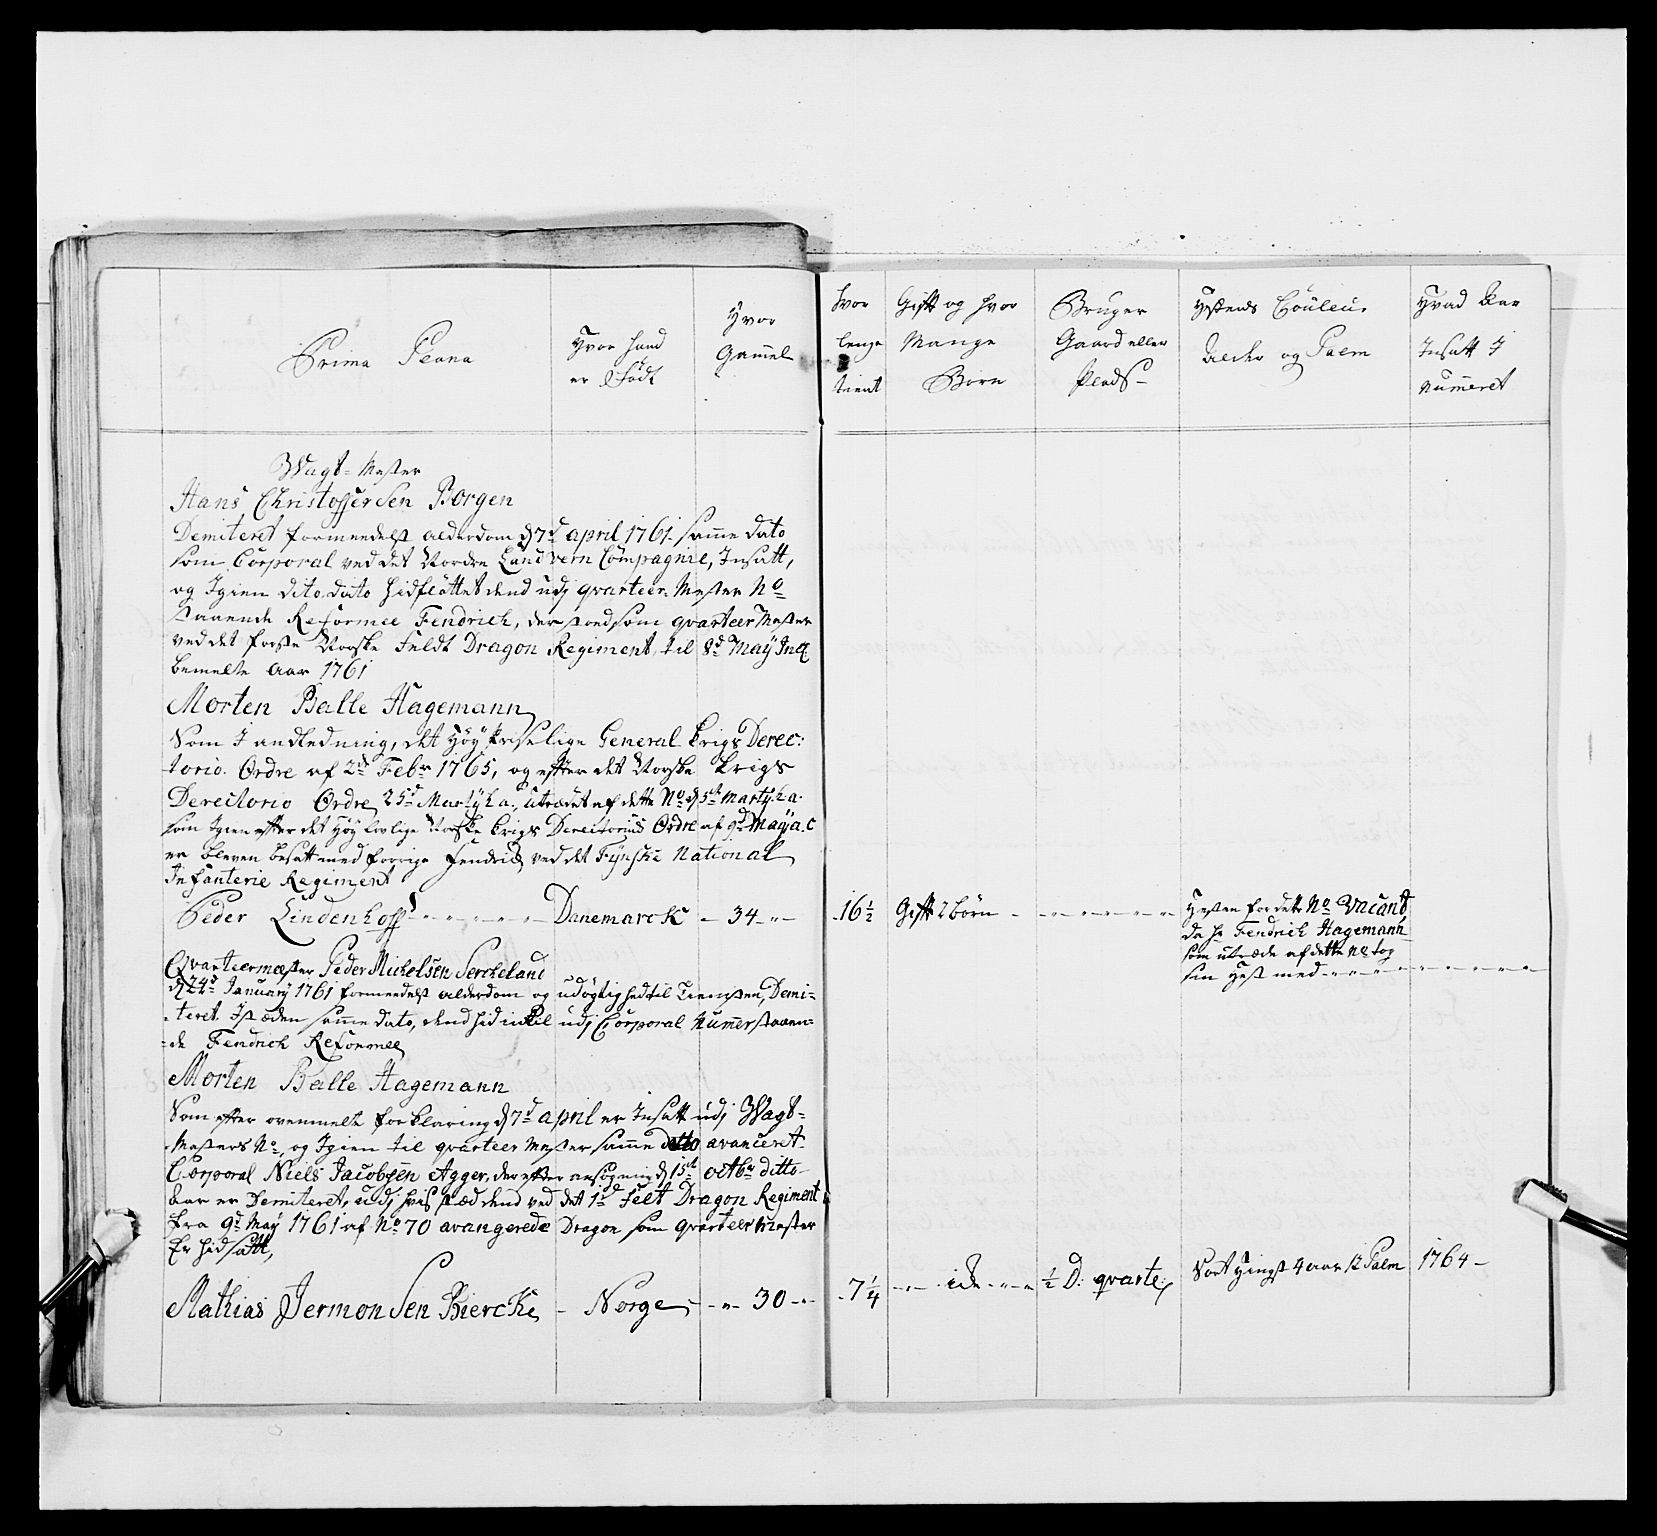 Prima Plana
Hvor hand
er Født
Hvor
Gamel
hvor
lenge
tient
Gift og hvor
Mange
Børn
Bruger
Gaard eller
Plads
Hestens Couleur
Alder og Palm
Hvad Aar
Insatt I
Numeret
Wagt-Mester
Hans Christoffersen Borgen
Demiteret formedelst alderdom d 7d april 1761. samme dato
som Corporal ved det Nordre Landvern Compagnie, Insatt,
og Igien dito dato hidfløttet dend udj qvarteer-Mester No
staaende Reformee Fendrich, der stod som qvarteer Mester
ved det første Norske Feldt Dragon Regiment, til 8d May Incl.
bemelte Aar 1761
Morten Balle Hagemann
Som I andledning, det Høypriselige General Krigs Derec:
torio. Ordre af 2d Febr 1765, og efter det Norske Krigs
Derectorio Ordre 25d Marty h. a. utrædet af dette No d 5t Marty. h. a.
som Igien efter det Høylovlige Norske Krigs Derectorius Ordre af 9d May a. c
er bleven besatt med forrige Fendrich ved det Fynske National
Infanterie Regiment
Peder Lindenhoff - - - - - Danemarck - 34 - -
16 1/2 Gift 2 børn - - - - - - -
Hesten for dette No Vacant,
da hr Fendrich Hagemann
som utræde af dette No tog
sin Hest med - - - - - -
Qvarteermæster Peder Michelsen Serckeland
d 24d January 1761 formedelst alderdom og udøgtighed til Tienesten, Demi-
teret. I stæden samme dato, dend hid indtil udj Corporal Numer staaen-
de Fendrich Reformee
Morten Balle Hagemann
Som efter ovenmelte forklaring d 7d april er Insatt udj Wagt-
Mesters No, og Igien til qvarteer Mester samme dato avanceret
Corporal Niels Jacobsen Agger, der efter ansøgning d 15d octbr ditto
Aar er Demiteret, udj hvis stæd dend ved det 1d Felt Dragon Regiment
fra 9d May 1761 af No 70 avangerede Dragon som qvarteer Mester
Er hidsatt,
Mathias Jermonsen Biercke - Norge - - 30 - -
7 1/4 - - ide - - - 1/2 D: qvarte:
Sort Hingst 4 aar 12 Palm
1764 -